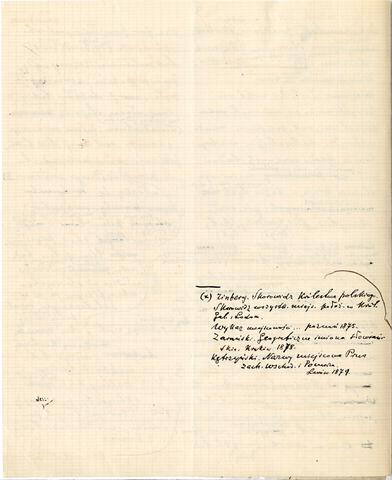 (x) Zinberg. Skorowidz Królestwa polskiego.
Skorowidz wszystk. miejsc. położ. w Król.
Gal. i Lodom.
Wykaz miejscowości ... poznań 1875.
Zarański. Geograficzne imiona słowiań-
skie. Kraków 1878.
Kętrzyński. Nazwy miejscowe Prus
zach. wschod. i Pomorza
Lwów 1879